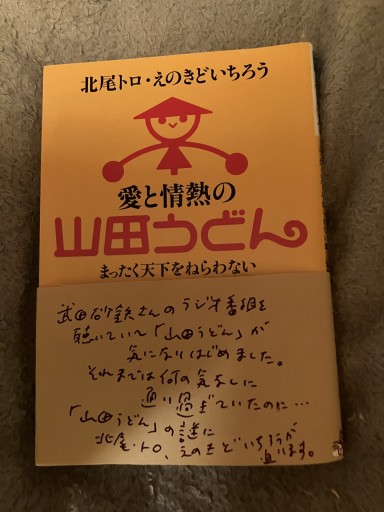 北尾トロ・えのきどいちろう
愛と情熱の
山田うどん
まったく天下をねらわない
武田砂鉄さんのラジオ番組を
聴いていて「山田うどん」が
気になりはじめました。
それまでは何の気なしに
通り過ぎていたのに…
「山田うどん」の謎に
北尾トロ、えのきどいちろうが
迫ります。